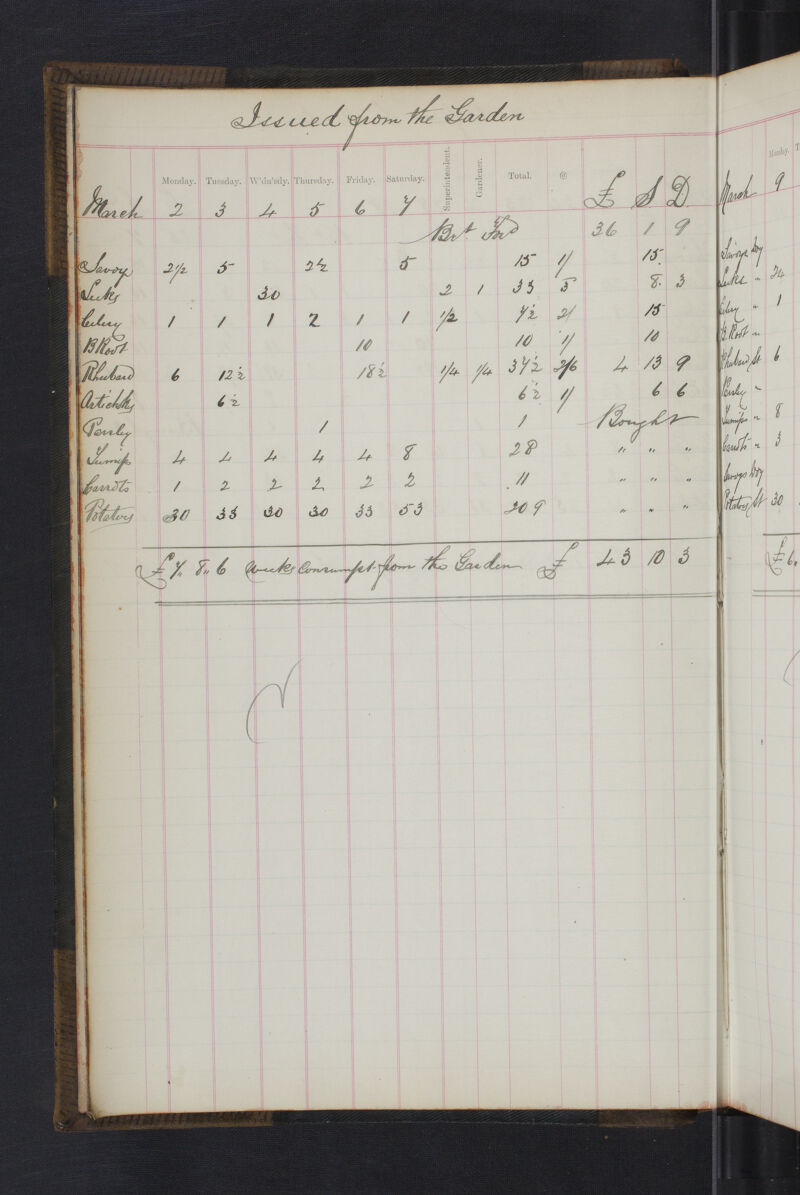 Issued from the Garden
Monday. Tuesday. W'dn'sdy. Thursday. Friday. Saturday. Superintendent. Gardener. Total. @
March 2 3 4 5 6 7 £ S D
Brt Ford 36 1 9
Savoys 2 1/2 5 2 1/2 5 15 1/ 15
Leeks 30 2 1 33 3 8 3
Celery 1 1 1 2 1 1 1/2 7 1/2 2/ 15
B Root 10 10 1/ 10
Rhubard 6 12 1/2 18 1/2 1/4 1/4 37 1/2 2/6 4 13 9
Artichks 6 1/2 6 1/2 1/ 6 6
Parsley 1 1 Bought
Turnips 4 4 4 4 4 8 28 " " "
Carrots 1 2 2 2 2 2 11 " " "
Potatoes 30 33 30 30 33 53 209 " " "
£7 " 8 " 6 Weeks Consumpt. from the Garden £ 43 10 3
Monday.
March 9
Savoys Dоy
Leeks " 24
Celery " 1
B. Root "
Rhubard St 6
Parsley "
Turnips " 8
Carrots " 3
Savoys Doy
Potatoes St 30
£6